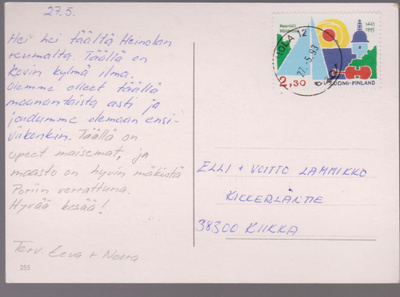 27.5.
Hei hei täältä Heinolan
reumalta. Täällä on
kovin kylmä ilma.
Olemme olleet täällä
maanantaista asti ja
joudumme olemaan ensi-
viikonkin. Täällä on
upeat maisemat, ja
maasto on hyvin mäkistä
Poriin verrattuna.
Hyvää kesää!
Terv. Eeva + Noora
255
1495
1995
NOLA 12
27.5.93
2,30
SUOMI-FINLAND
ELLI + VOITTO LAMMIKKO
KIKKERLÄNTIE
38300 KIIKKA